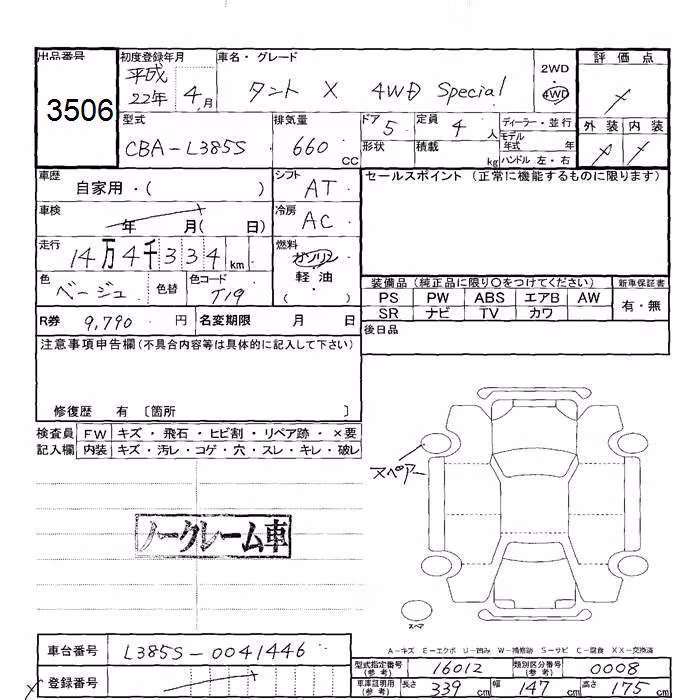 出品番号 初度登録年月 車名・グレード 2WD 評価点
3506 平成22年 4月 タント X 4WD Special 4WD
外装 内装
型式 排気量 ドア 定員 ディーラー・並行
CBA-L385S 660 CC 5 4 人 モデル年式 年
形状 積載 kg ハンドル 左・右
車歴 自家用・( ) シフト AT セールスポイント (正常に機能するものに限ります)
車検 年 月( 日) 冷房 AC
走行 14万4千334 km 燃料 ガソリン
軽油
( )
色 ベージュ 色替 色コード T19
装備品 (純正品に限り○をつけてください) 新車保証書
PS PW ABS エアB AW 有・無
SR ナビ TV カワ
R券 9,790 円 名変期限 月 日 後日品
注意事項申告欄(不具合内容等は具体的に記入して下さい)
修復歴 有 〔箇所 〕
検査員 FW キズ・飛石・ヒビ割・リペア跡・×要
記入欄 内装 キズ・汚レ・コゲ・穴・スレ・キレ・破レ
スペアー
ノークレーム車
スペア
A-キズ E-エクボ U-凹み W-補修跡 S-サビ C-腐食 XX-交換済
車台番号 L385S-0041446
型式指定番号(参考) 16012 類別区分番号(参考) 0008
登録番号
車庫証明用(参考) 長さ 339 cm 幅 147 cm 高さ 175 cm